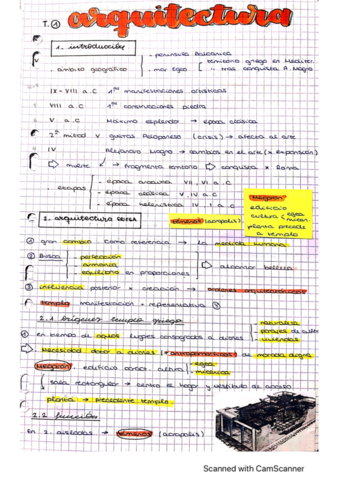 T.① arquitectura
1. introducción
· península Balcánica
· ámbito geográfico
· mar Egeo
territorio griego en Medit.
+ mas conquista A. Magno
IX - VIII a.C 1as manifestaciones artísticas
VIII a.C 1as construcciones piedra
V a.C Máximo esplendor → época clásica
2ª mitad V guerras Peloponeso (crisis) → afectó al arte
IV Alejandro Magno → cambios en el arte (x expansión)
muerte → Fragmenta territorio → conquista x Roma
· etapas
· época arcaica VII, VI a.C
· época clásica V, IV a.C
· época helenística a.C
Megaron
edificio
cultura egea
micen.
planta precede
a templo
2. arquitectura
témenos (acrópolis).
① gran cambio como referencia → la medida humana
② Busca
perfección
armonía
equilibrio en proporciones
alcanzar belleza
③ influencia posterior x creación → órdenes arquitectónicos
templo manifestación + representativa
2.1 orígenes templo griego
naturaleza
viviendas
④ en tiempo de aqueos lugares consagrados a dioses
Necesidad dotar a dioses (antropomórficos) de morada digna
Megaron edificio caract. cultura
egea
micénica
sala rectangular → centro el hogar y vestíbulo de acceso
planta → precedente templo.
2.2 función
En z. aisladas → témenos (acrópolis)
Scanned with CamScanner